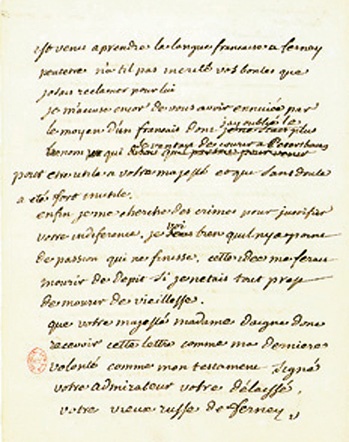 est venu aprendre la langue francaise a ferney
peutetre n'a til pas merité vos bontés que
josais reclamer pour lui
je m'accuse encor de vous avoir ennuiée par
le moyen d'un francais dont jay oublié le
nom qui se vantait de courir a Petersbourg
pour etre utile a votre majesté et qui sans doute
a été fort inutile.
enfin je me cherche des crimes pour justifier
votre indiference. je vois bien quil ny a point
de passion qui ne finisse. cette idée me ferait
mourir de depit si je netais tout pres
de mourir de vieillesse.
que votre majesté madame daigne donc
recevoir cette lettre comme ma derniere
volonté comme mon testament signé
votre admirateur votre délaissé,
votre vieux russe de ferney